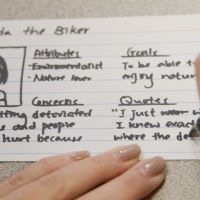 da the Biker
Attributes
- Environmentalist
- Nature lover
Goals
To be able t
enjoy natur
Concerns
tting deteriated
s and people
hurt because
Quotes
"I just wa
I knew exact
where the de